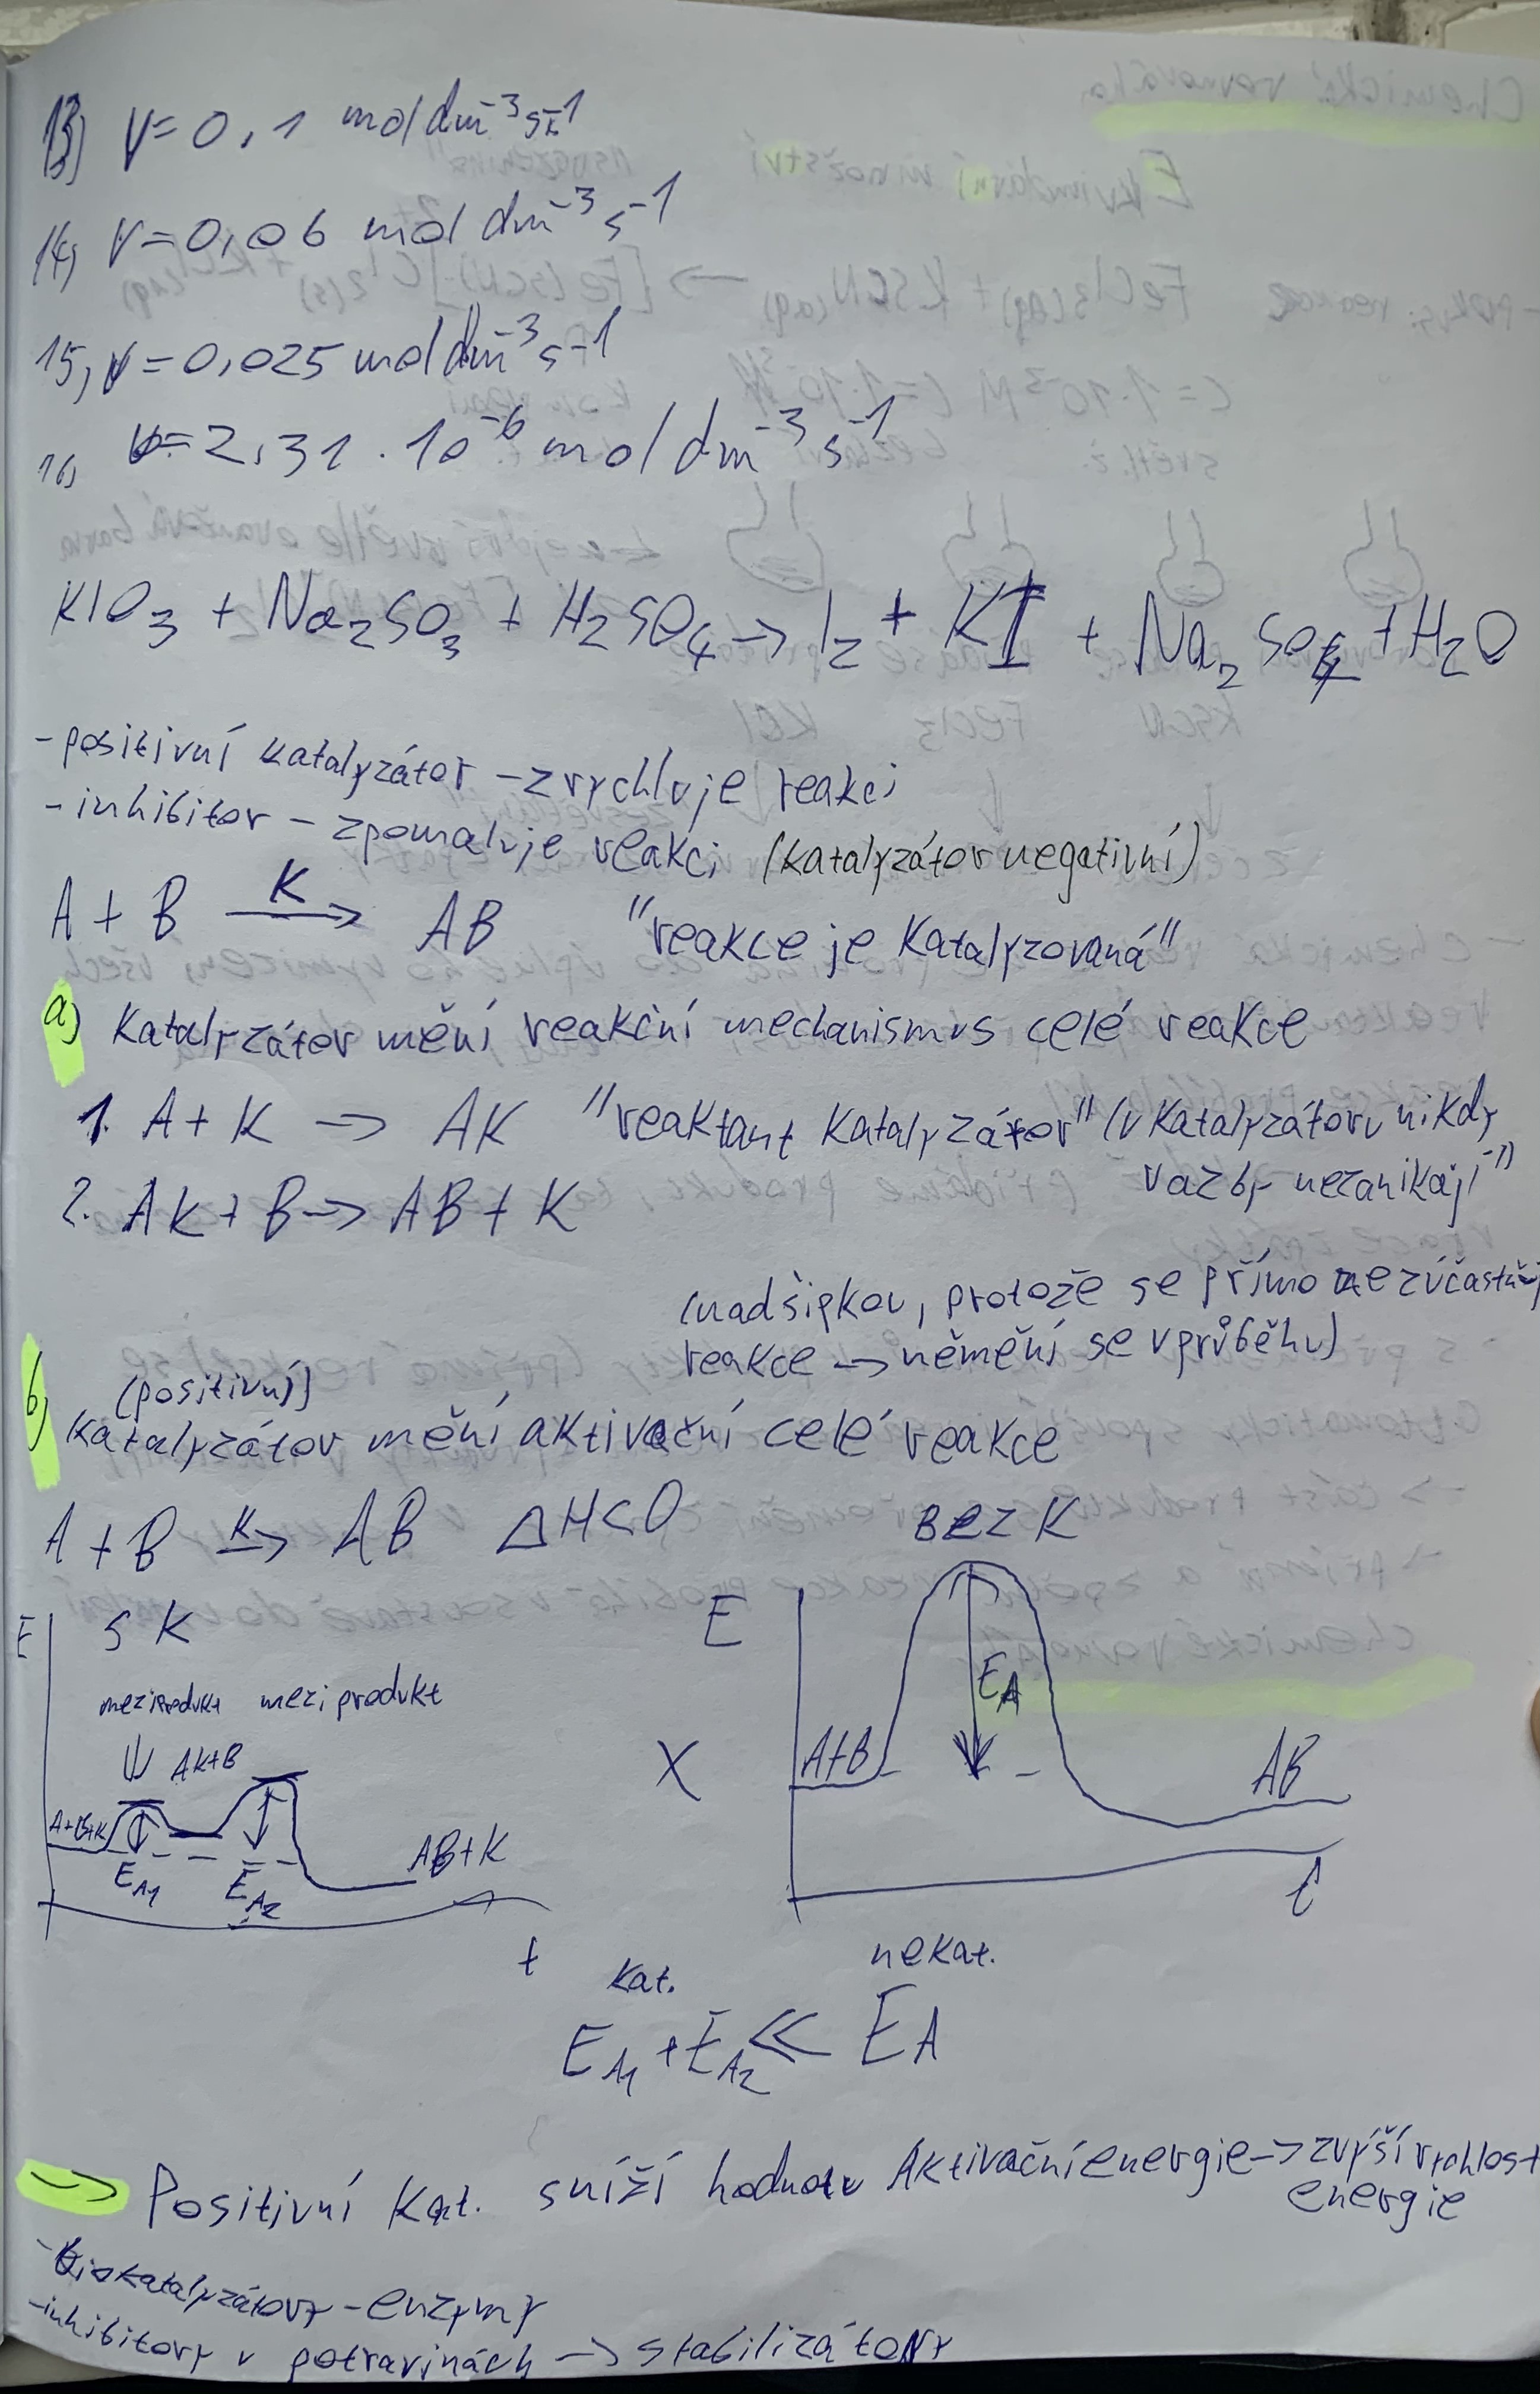 13) V = 0,1 mol dm⁻³ s⁻¹
14, V = 0,06 mol dm⁻³ s⁻¹
15, v = 0,025 mol dm⁻³ s⁻¹
16, v = 2,31 . 10⁻⁶ mol dm⁻³ s⁻¹
KIO₃ + Na₂SO₃ + H₂SO₄ → I₂ + KI + Na₂SO₄ + H₂O
- positivní katalyzátor - zvrychluje reakci
- inhibitor - zpomaluje reakci (katalyzátor negativní)
A + B —K→ AB "reakce je katalyzovaná"
a) Katalyzátor mění reakční mechanismus celé reakce
1. A + K → AK "reaktant katalyzátor" (v katalyzátoru nikdy
vazby nezanikají"
2. AK + B → AB + K
(nad šipkou, protože se přímo nezúčastňuj
reakce → němění se v průběhu)
(positivní)
b) katalyzátor mění aktivační celé reakce
A + B —K→ AB ΔH<0
BEZ K
E s K
E
meziprodukt meziprodukt
EA
AK+B
X
A+B
AB
A+B+K
AB+K
EA1 EA2
t
t
kat. nekat.
EA1 + EA2 ≪ EA
→ Positivní kat. sníží hodnotu Aktivační energie → zvýší rychlost
energie
- biokatalyzátory - enzymy
- inhibitory v potravinách → stabilizátory